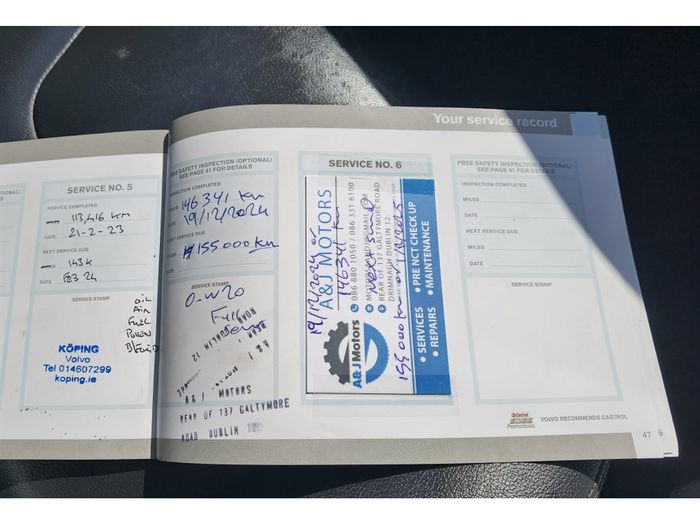 Your service record
SERVICE NO. 5
SERVICE COMPLETED
113,416 KM
DATE 21-2-23
NEXT SERVICE DUE
143K
DATE FEB 24
SERVICE STAMP
OIL
AIR
FUEL
POLLEN
KÖPING
Volvo
Tel 014607299
koping.ie
FREE SAFETY INSPECTION (OPTIONAL)
SEE PAGE 41 FOR DETAILS
INSPECTION COMPLETED
146341 km
19/12/2024
NEXT SERVICE DUE
MILES 155000 km
DATE
SERVICE STAMP
0-W20
Full
A & J MOTORS
REAR OF 137 GALTYMORE
ROAD DUBLIN 12
SERVICE NO. 6
A&J MOTORS
086 880 1050 / 086 331 6100
REAR OF 137 GALTYMORE ROAD
DRIMNAGH DUBLIN 12.
• SERVICES
• PRE NCT CHECK UP
• REPAIRS
• MAINTENANCE
A&J Motors
19/12/2024
146341 km
155000 km or
FREE SAFETY INSPECTION (OPTIONAL)
SEE PAGE 41 FOR DETAILS
INSPECTION COMPLETED
MILES
DATE
NEXT SERVICE DUE
MILES
DATE
SERVICE STAMP
Castrol
EDGE
Professional
VOLVO RECOMMENDS CASTROL
47 9